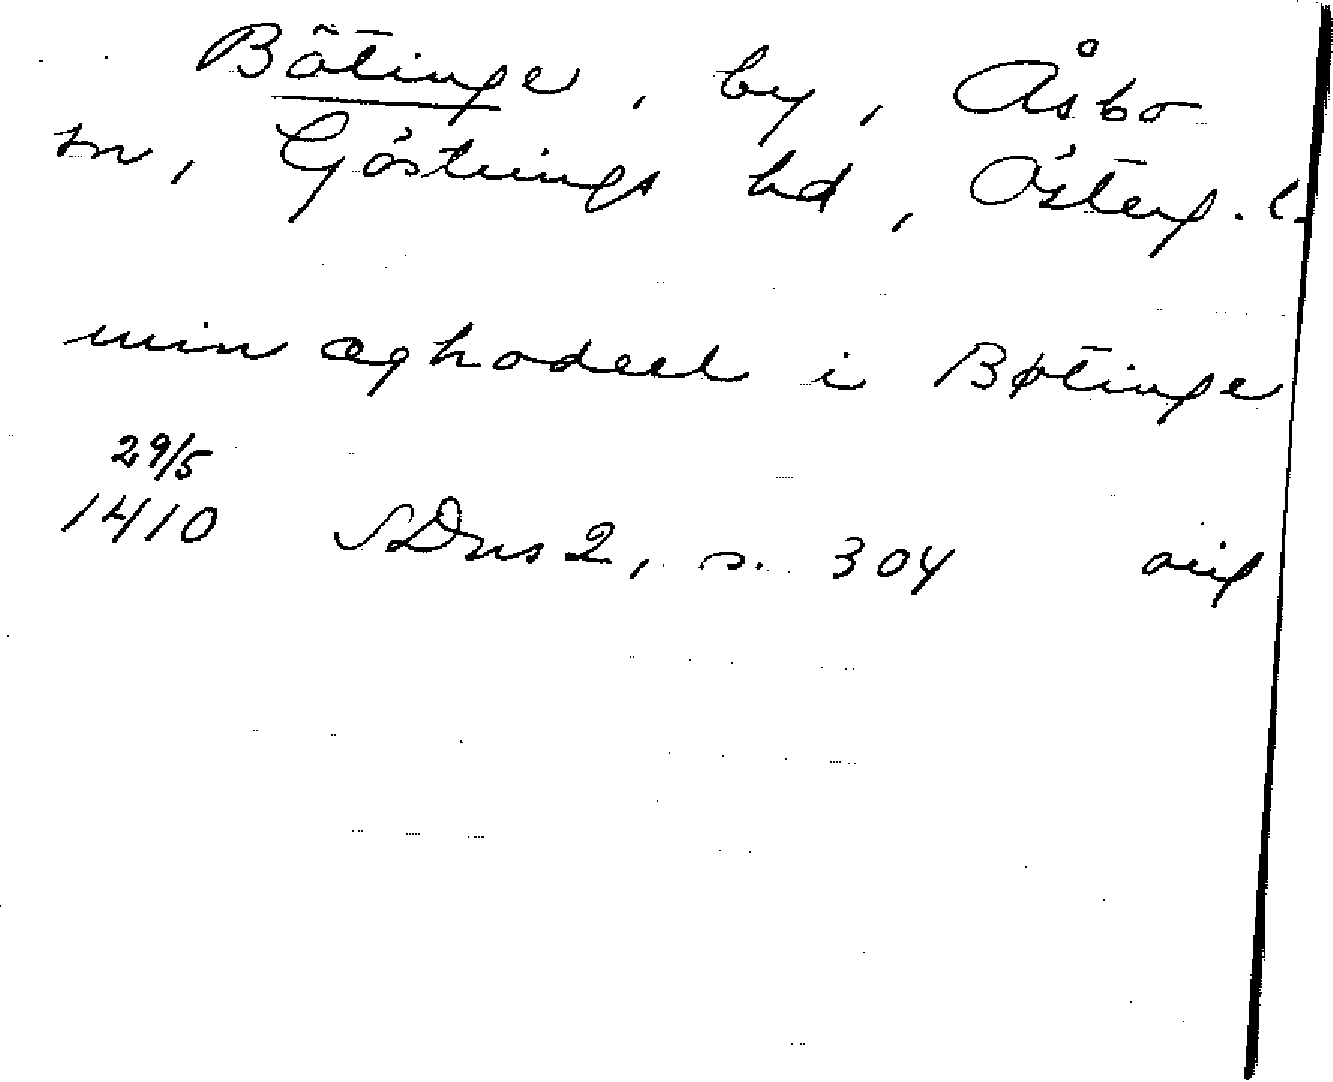 Bötinge, by, Åsbo
sn, Göstrings hd, Österg. l.
min æghodeel i Bøtinge
29/5
1410 SDns 2, s. 304 orig